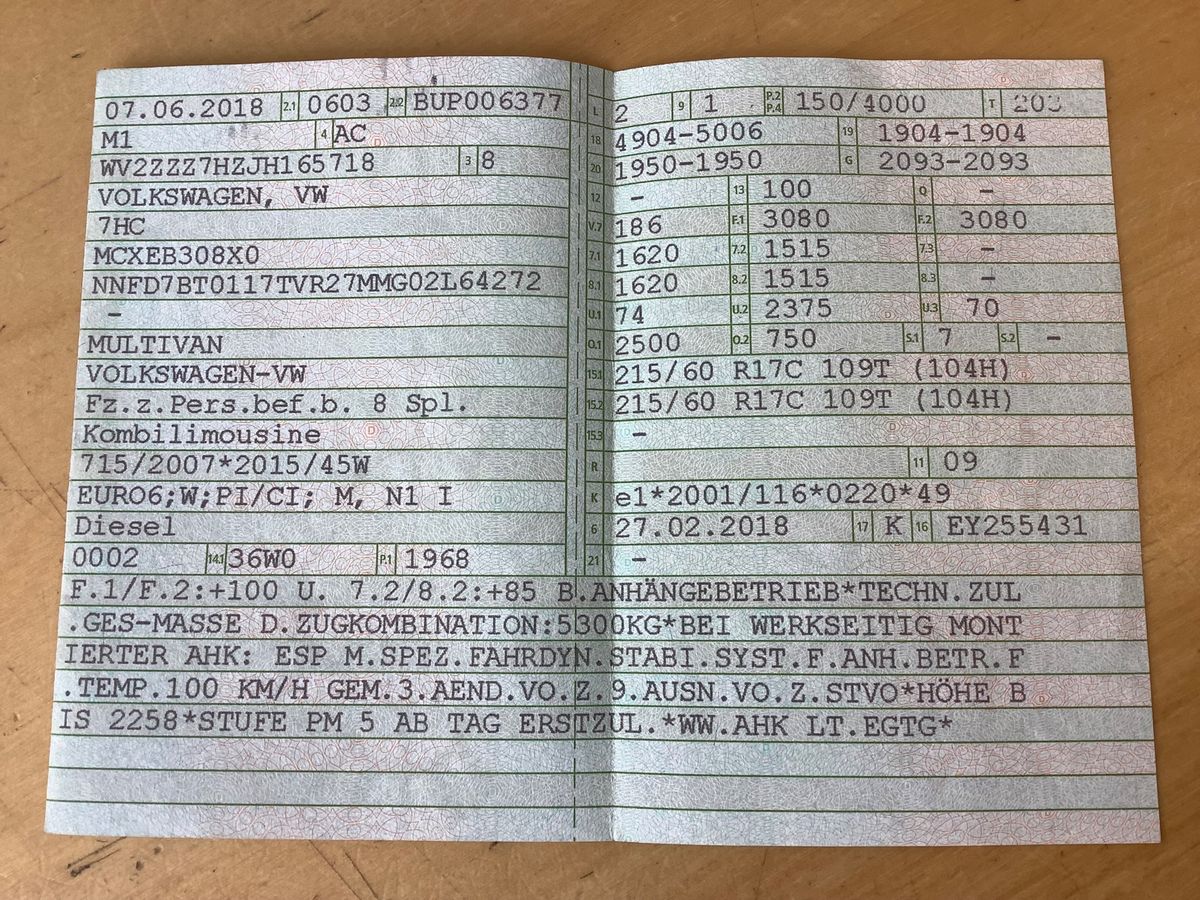 07.06.2018 2.1 0603 2.2 BUP006377
M1 4 AC
WV2ZZZ7HZJH165718 3 8
VOLKSWAGEN, VW
7HC
MCXEB308X0
NNFD7BT0117TVR27MMG02L64272
–
MULTIVAN
VOLKSWAGEN-VW
Fz.z.Pers.bef.b. 8 Spl.
Kombilimousine
715/2007*2015/45W
EURO6;W;PI/CI; M, N1 I
Diesel
0002 14.1 36W0 P.1 1968
L 2 9 1 P.2 P.4 150/4000 T 203
18 4904-5006 19 1904-1904
20 1950-1950 G 2093-2093
12 – 13 100 Q –
V.7 186 F.1 3080 F.2 3080
7.1 1620 7.2 1515 7.3 –
8.1 1620 8.2 1515 8.3 –
U.1 74 U.2 2375 U.3 70
O.1 2500 O.2 750 S.1 7 S.2 –
15.1 215/60 R17C 109T (104H)
15.2 215/60 R17C 109T (104H)
15.3 –
R 11 09
K e1*2001/116*0220*49
6 27.02.2018 17 K 16 EY255431
21 –
F.1/F.2:+100 U. 7.2/8.2:+85 B.ANHÄNGEBETRIEB*TECHN.ZUL
.GES-MASSE D.ZUGKOMBINATION:5300KG*BEI WERKSEITIG MONT
IERTER AHK: ESP M.SPEZ.FAHRDYN.STABI.SYST.F.ANH.BETR.F
.TEMP.100 KM/H GEM.3.AEND.VO.Z.9.AUSN.VO.Z.STVO*HÖHE B
IS 2258*STUFE PM 5 AB TAG ERSTZUL.*WW.AHK LT.EGTG*